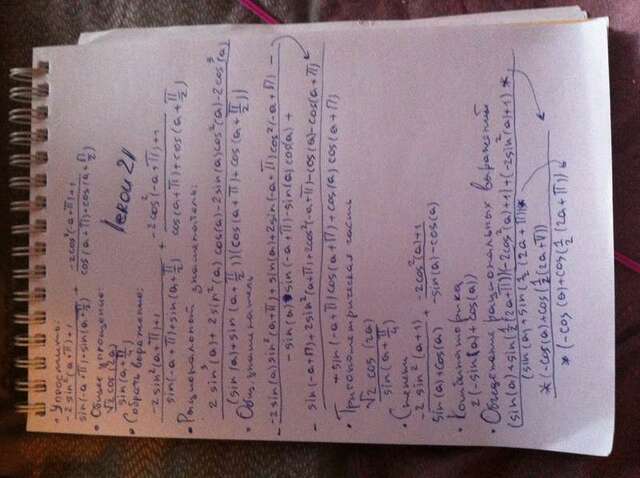 • Упростить:
-2sin²(a+π)+1 / sin(-a+π)+sin(a+π/2) + -2cos²(-a+π)+1 / cos(a+π)+cos(a+π/2)
• Общее упрощение:
√2 cos(2a) / sin(a+π/4)
• Собрать выражение:
-2sin²(a+π)+1 / sin(-a+π)+sin(a+π/2) + -2cos²(-a+π)+1 / cos(a+π)+cos(a+π/2)
• Рациональный знаменатель:
2sin³(a)+2sin²(a)cos(a)-2sin(a)cos²(a)-2cos³(a) / (sin(a)+sin(a+π/2))(cos(a+π)+cos(a+π/2))
• Общ. знаменатель
-2sin(a)sin²(a+π)+sin(a)+2sin(a+π)cos²(-a+π)-
-sin(a)sin(-a+π)-sin(a)cos(a)+
-sin(-a+π)+2sin²(a+π)+2cos²(-a+π)-cos(a)-cos(a+π)
+sin(-a+π)cos(a+π)+cos(a)cos(a+π)
• Тригонометрическая часть
√2 cos(2a) / sin(a+π/4)
• Степени
-2sin²(a+1) / sin(a)+cos(a) + -2cos²(a)+1 / -sin(a)-cos(a)
• Комбинаторика
2(-sin(a)+cos(a))
• Обьединение рациональных выражений
(sin(a)+sin(½(2a+π)))(-2cos²(a)+1)+(-2sin²(a)+1)*
(sin(a)+sin(½(2a+π))*
*(-cos(a)+cos(½(2a+π))
*(-cos(a)+cos(½(2a+π))